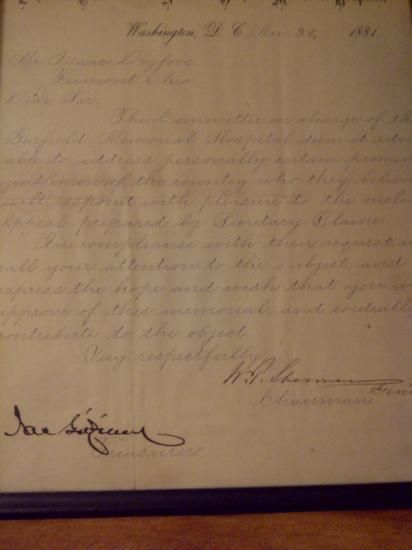 Washington, D. C. Nov 30, 1881.
Mr. Isaac Dryfoos
Fremont Ohio
Dear Sir
The Committee in charge of th
Garfield Memorial Hospital deem it advis
able to address personally certain promin
gentlemen of the country who they believe
will respond with pleasure to the enclos
Appeal prepared by Secretary Blaine
In compliance with their request
call your attention to the subject, and
express the hope and wish that you wi
approve of this memorial, and cordially
contribute to the object
Very respectfully
W. T. Sherman
Chairman
Treasurer